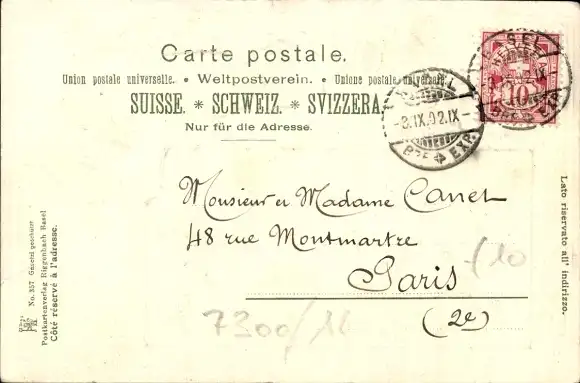 Carte postale.
Union postale universelle. • Weltpostverein. • Unione postale universale.
SUISSE. * SCHWEIZ. * SVIZZERA.
Nur für die Adresse.
BASEL
-3.IX.02.IX-
BRF EXP.
HELVETIA
10
BRF EXP.
Monsieur et Madame Canet
48 rue Montmartre
Paris
(2e)
7300/16
10
Lato riservato all' indirizzo.
No. 357 Gesetzl geschützt
Postkartenverlag Riggenbach Basel
Côté réservé à l'adresse.